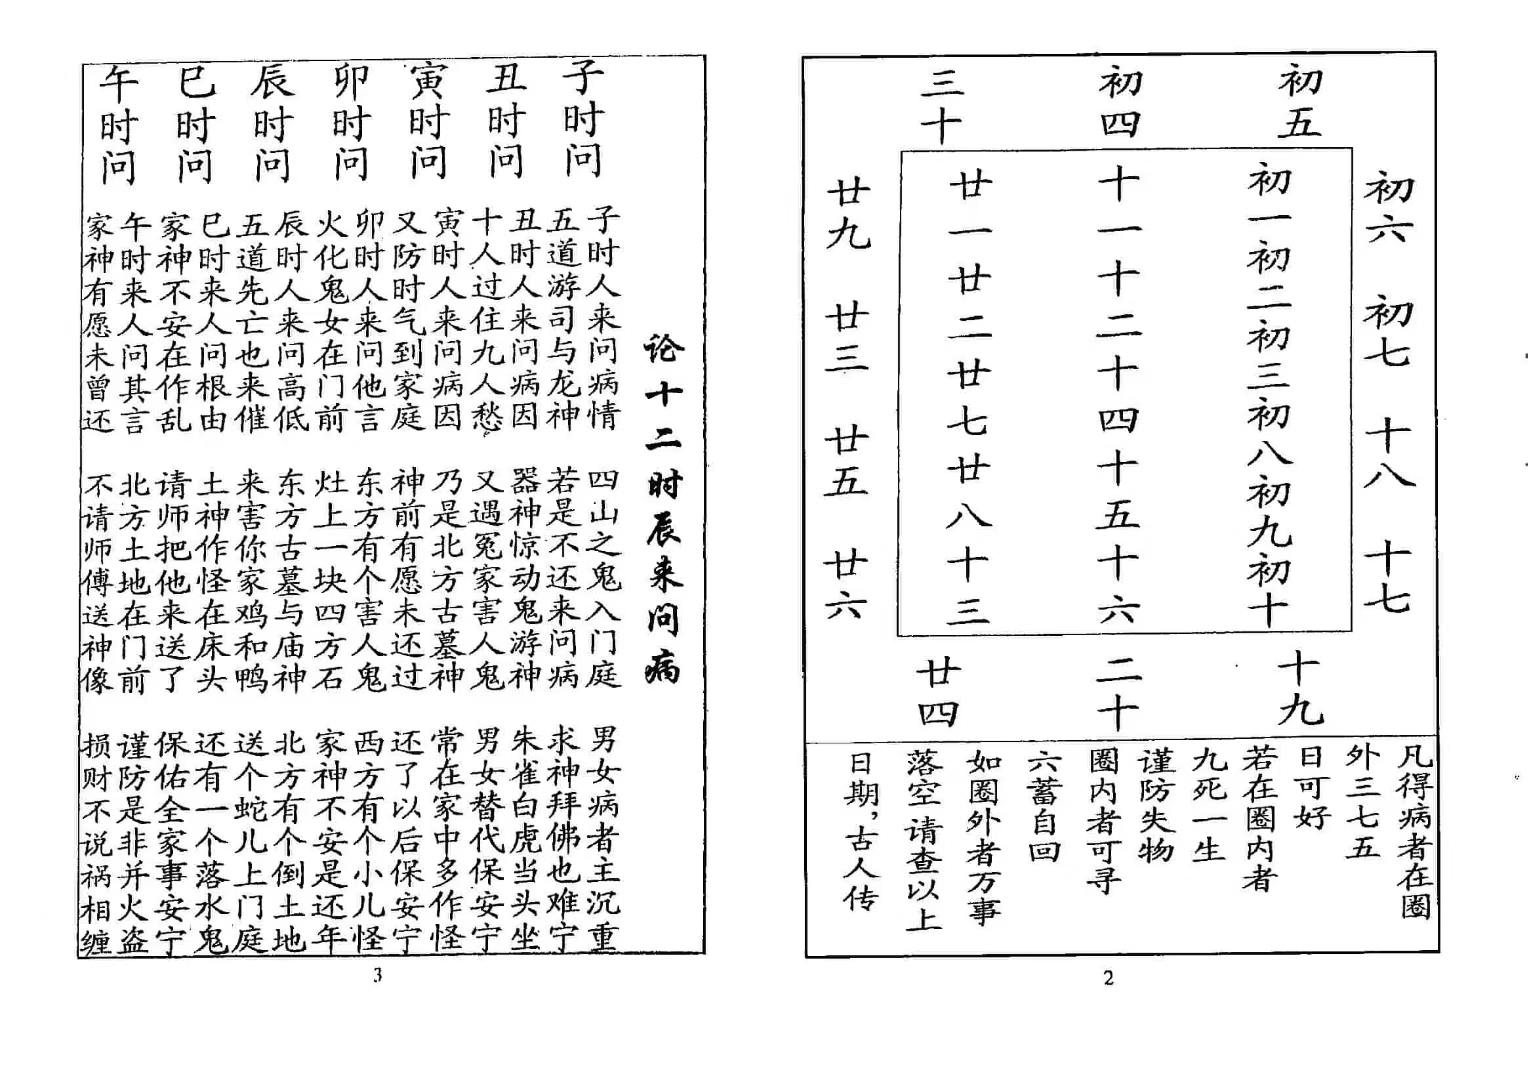 初五
初四
三十
初六 初七 十八 十七
初一初二初三初八初九初十
十一十二十四十五十六
廿一廿二廿七廿八十三
廿九 廿三 廿五 廿六
十九
二十
廿四
凡得病者在圈
外三七五
日可好
若在圈内者
九死一生
谨防失物
圈内者可寻
六蓄自回
如圈外者万事
落空请查以上
日期，古人传
2
论十二时辰来问病
子时问
子时人来问病情 四山之鬼入门庭 男女病者主沉重
五道游司与龙神 若是不还来问病 求神拜佛也难宁
丑时问
丑时人来问病因 器神惊动鬼游神 朱雀白虎当头坐
十人过住九人愁 又遇冤家害人鬼 男女替代保安宁
寅时问
寅时人来问病因 乃是北方古墓神 常在家中多作怪
又防时气到家庭 神前有愿未还过 还了以后保安宁
卯时问
卯时人来问他言 东方有个害人鬼 西方有个小儿怪
火化鬼女在门前 灶上一块四方石 家神不安是还年
辰时问
辰时人来问高低 东方古墓与庙神 北方有个倒土地
五道先亡也来催 来害你家鸡和鸭 送个蛇儿上门庭
巳时问
巳时来人问根由 土神作怪在床头 还有一个落水鬼
家神不安在作乱 请师把他来送了 保佑全家事安宁
午时问
午时来人问其言 北方土地在门前 谨防是非并火盗
家神有愿未曾还 不请师傅送神像 损财不说祸相缠
3